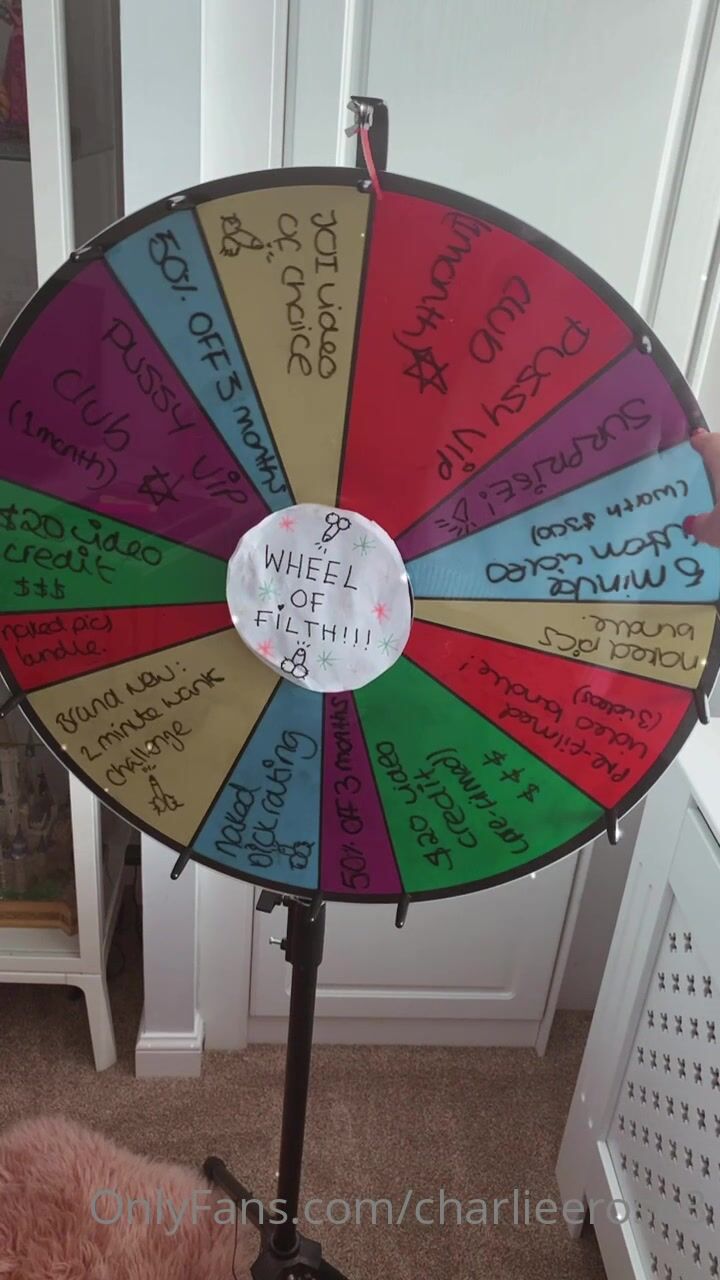 WHEEL
OF
FILTH!!!
JOI video
of choice
(1month)
club
pussy vip
SURPRISE!
5 minute
custom video
(worth $300)
naked pics
bundle.
Pre-filmed
video bundle!
(3 videos)
$20 video
credit
(pre-filmed)
$ $ $
50% OFF 3 months
naked
Dick rating
Brand new:
2 minute wank
challenge
naked pics
bundle.
$20 video
credit
$$$
pussy vip
club
(1month)
50% OFF 3 months
OnlyFans.com/charlieero